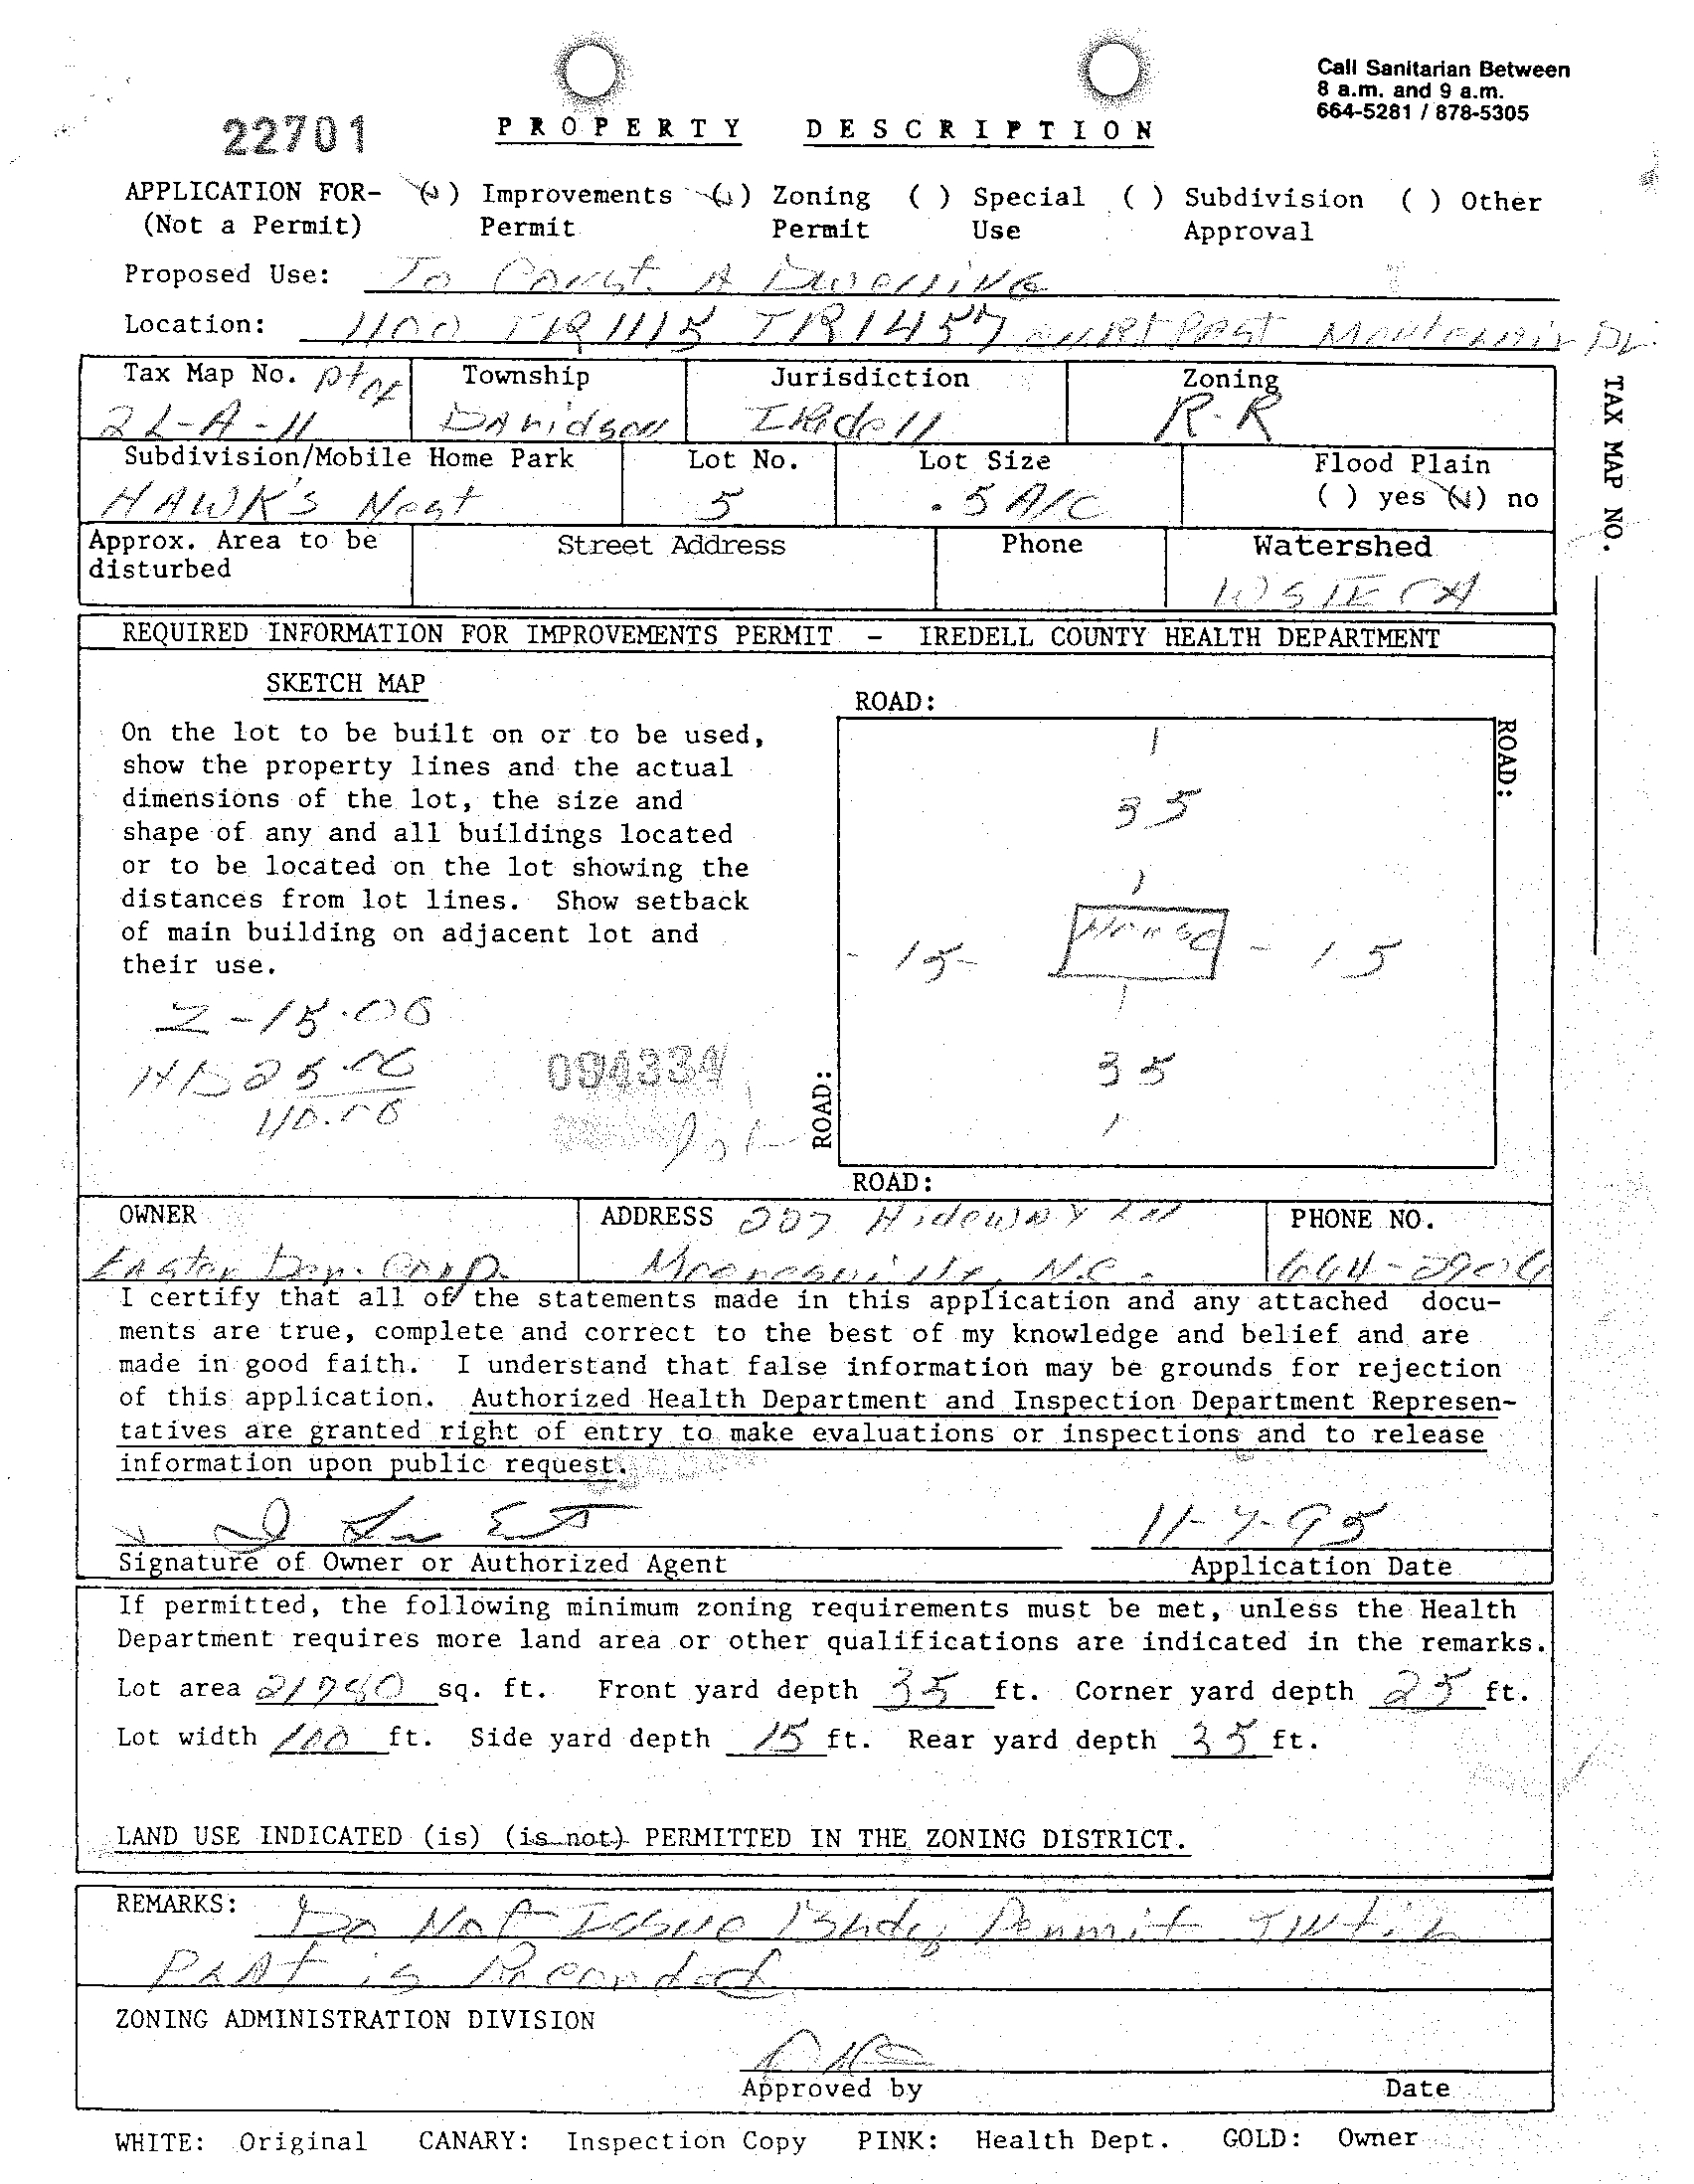 Call Sanitarian Between
8 a.m. and 9 a.m.
664-5281 / 878-5305
22701
PROPERTY DESCRIPTION
APPLICATION FOR- ( ) Improvements ( ) Zoning ( ) Special ( ) Subdivision ( ) Other
(Not a Permit) Permit Permit Use Approval
Proposed Use: To Const. A Dwelling
Location: 1100 TR 1115 TR 1457 on Rt Past Dr.
Tax Map No. pt of Township Jurisdiction Zoning
2L-A-11 Davidson Iredell R-R
Subdivision/Mobile Home Park Lot No. Lot Size Flood Plain
HAWK'S Nest 5 .5 A/C ( ) yes (x) no
Approx. Area to be Street Address Phone Watershed
disturbed
WSIV CA
TAX MAP NO.
REQUIRED INFORMATION FOR IMPROVEMENTS PERMIT - IREDELL COUNTY HEALTH DEPARTMENT
SKETCH MAP
On the lot to be built on or to be used,
show the property lines and the actual
dimensions of the lot, the size and
shape of any and all buildings located
or to be located on the lot showing the
distances from lot lines. Show setback
of main building on adjacent lot and
their use.
Z-15.00
HD 25.00
40.00
ROAD:
ROAD:
35
- 15 - House - 15
35
ROAD:
ROAD:
OWNER ADDRESS 207 Hideway Ln PHONE NO.
Easter Dev. Corp. Mooresville, N.C. 664-2906
I certify that all of the statements made in this application and any attached docu-
ments are true, complete and correct to the best of my knowledge and belief and are
made in good faith. I understand that false information may be grounds for rejection
of this application. Authorized Health Department and Inspection Department Represen-
tatives are granted right of entry to make evaluations or inspections and to release
information upon public request.
11-7-95
Signature of Owner or Authorized Agent Application Date
If permitted, the following minimum zoning requirements must be met, unless the Health
Department requires more land area or other qualifications are indicated in the remarks.
Lot area 21780 sq. ft. Front yard depth 35 ft. Corner yard depth 25 ft.
Lot width 100 ft. Side yard depth 15 ft. Rear yard depth 35 ft.
LAND USE INDICATED (is) (is not) PERMITTED IN THE ZONING DISTRICT.
REMARKS: Do Not Issue Bldg Permit Until
PLAT is Recorded
ZONING ADMINISTRATION DIVISION
Approved by Date
WHITE: Original CANARY: Inspection Copy PINK: Health Dept. GOLD: Owner